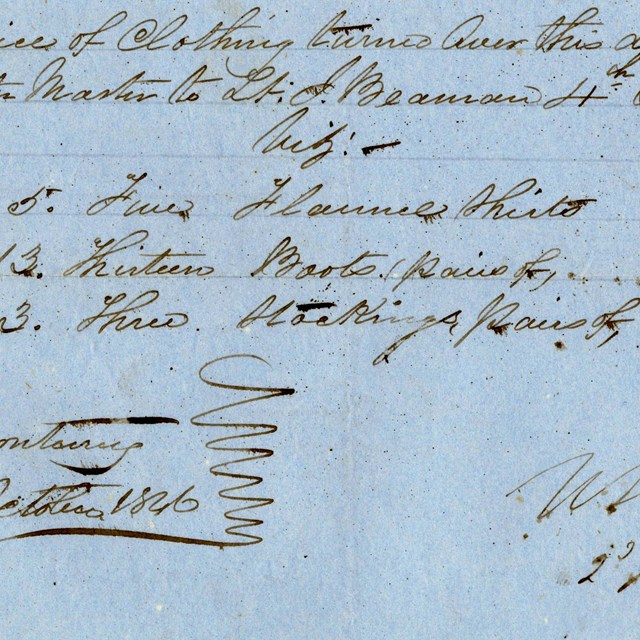 of Clothing turned over this
Martin to Lt. J. Beaman 4th
Viz:
5. Five Flannel Shirts
13. Thirteen Boots (pairs of,
3. Three Stockings pairs of,
1846
W
2